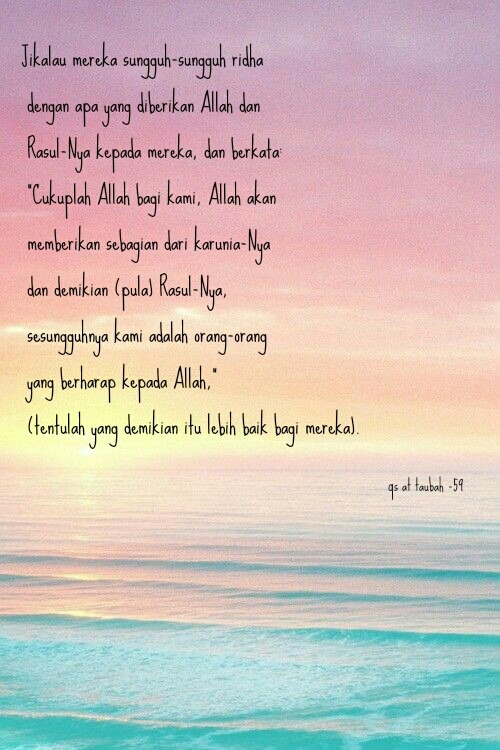 Jikalau mereka sungguh-sungguh ridha
dengan apa yang diberikan Allah dan
Rasul-Nya kepada mereka, dan berkata:
"Cukuplah Allah bagi kami, Allah akan
memberikan sebagian dari karunia-Nya
dan demikian (pula) Rasul-Nya,
sesungguhnya kami adalah orang-orang
yang berharap kepada Allah,"
(tentulah yang demikian itu lebih baik bagi mereka).
qs at taubah -59